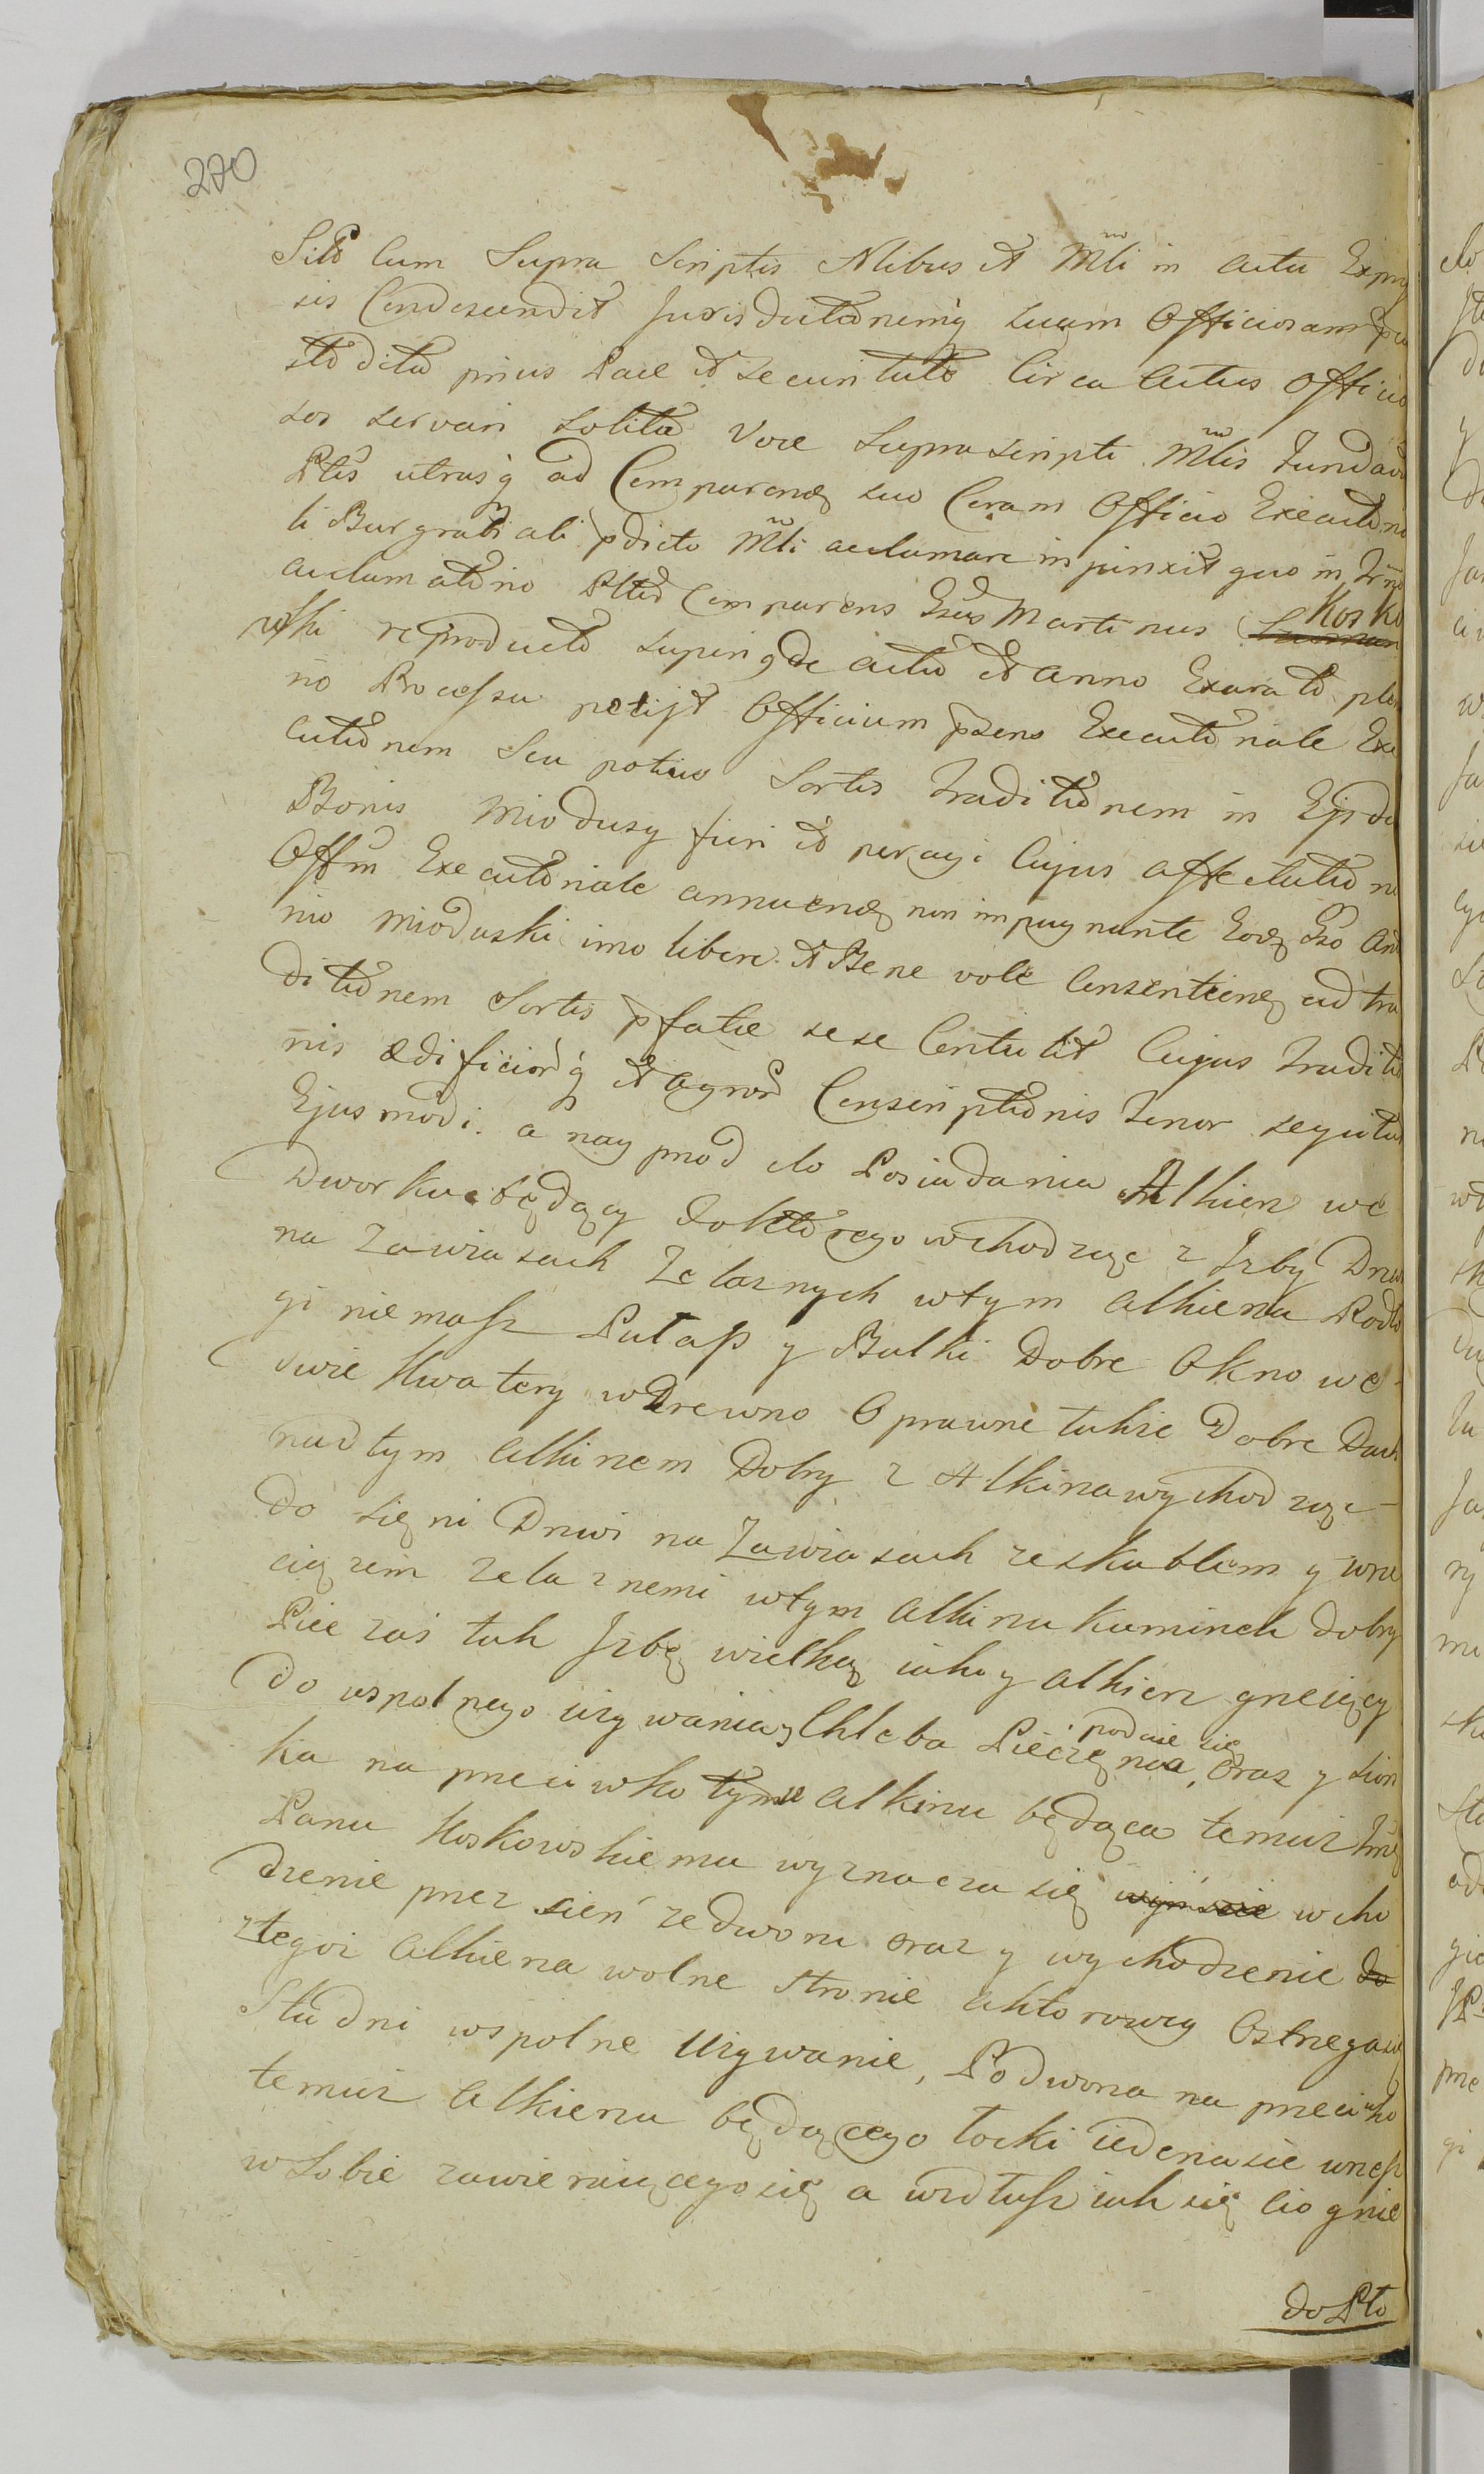 220
Sitis Cum Supra Scriptis Nlibus et Mli in actu Expres
sis Condescendit Jurisdictnemq suam Officiosam
dita prius Pace et Securitate Circa Actus Officio
sos servari solita Voce Suprascripti Mlis
Ptes utrasq ad Comparend suo Coram Officio Executno
li Burgrabiali pdicto Mli aclamare injunxit quo in Trno
aclamatnio Comparens Gsus Martinus Kosko
wski reproducto superq de actu et anno Exarato
no Processu petijt Officium psens Executnale Exe
cutnem Seu potius Sortis Traditnem in Ejsd
Bonis Miodusy fieri et peragi Cujus affectatn
Offm Executnale annuend non impugnante Eod Gso An
nio Mioduski imo libere et Bene vole Consentiend ad tra
ditnem Sortis pfatæ sese Contulit Cujus Tradit
nis ædificiorq et agror Conscriptnis Tenor sequitur
Ejusmodi. a nayprzod do Posiadania Alkierz we
Dworku będący do ktorego wchodząc z Jzby Drzwi
na Zawiasach Zelaznych w tym Alkierzu Podło
gi niemasz Pułap y Balki Dobre Okno we
dwie Kwatery w Drewno Oprawne takze Dobre Dach
nad tym Alkirzem Dobry z Alkirza wychodząc
do sięni Drzwi na Zawiasach ze skoblem y wrze
ciązem zelaznemi w tym Alkirzu Kominek dobry
Piec zaś tak Jzbę wielką iako y Alkierz grzeiący
do wspolnego uzywania y Chleba Pieczęnia podaie się, Oraz y sion
ka na przeciwko tymze Alkirzu będąca temuz Jmę
Panu Koskowskiemu wyznacza się wcho
dzenie przez sień ze dworu oraz y wychodzenie do
z tegoz Alkierza wolne stronie Aktorowey Ostrzega się
Studni wspolne Uzywanie, Podworza na przeciwko
temuz Alkierzu będącego łocki iedenascie wszesz
w Sobie zawieraiącego się a wzdłusz iak się ciognie
do Pło